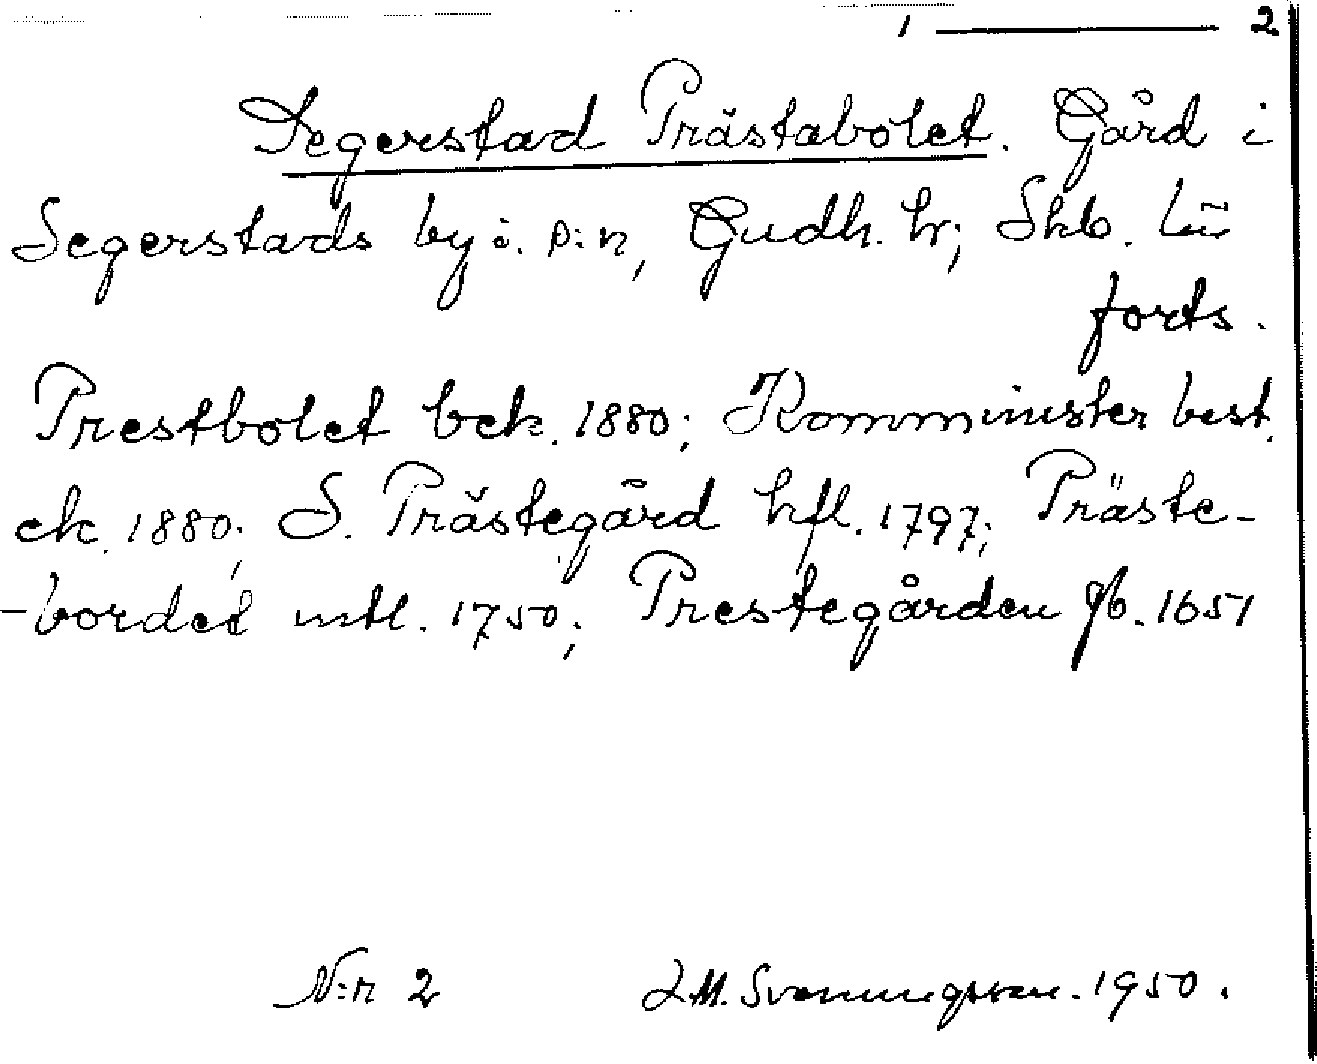 1 — 2
Segerstad Prästabolet. Gård i
Segerstads by i. s:n, Gudh. hr; Skb. län
forts.
Prestbolet bek. 1880; Komminister best.
ek. 1880; S. Prästegård hfl. 1797; Präste-
-bordet mtl. 1750; Prestegården Jb. 1651
N:r 2 J.M. Svenningsson. 1950.